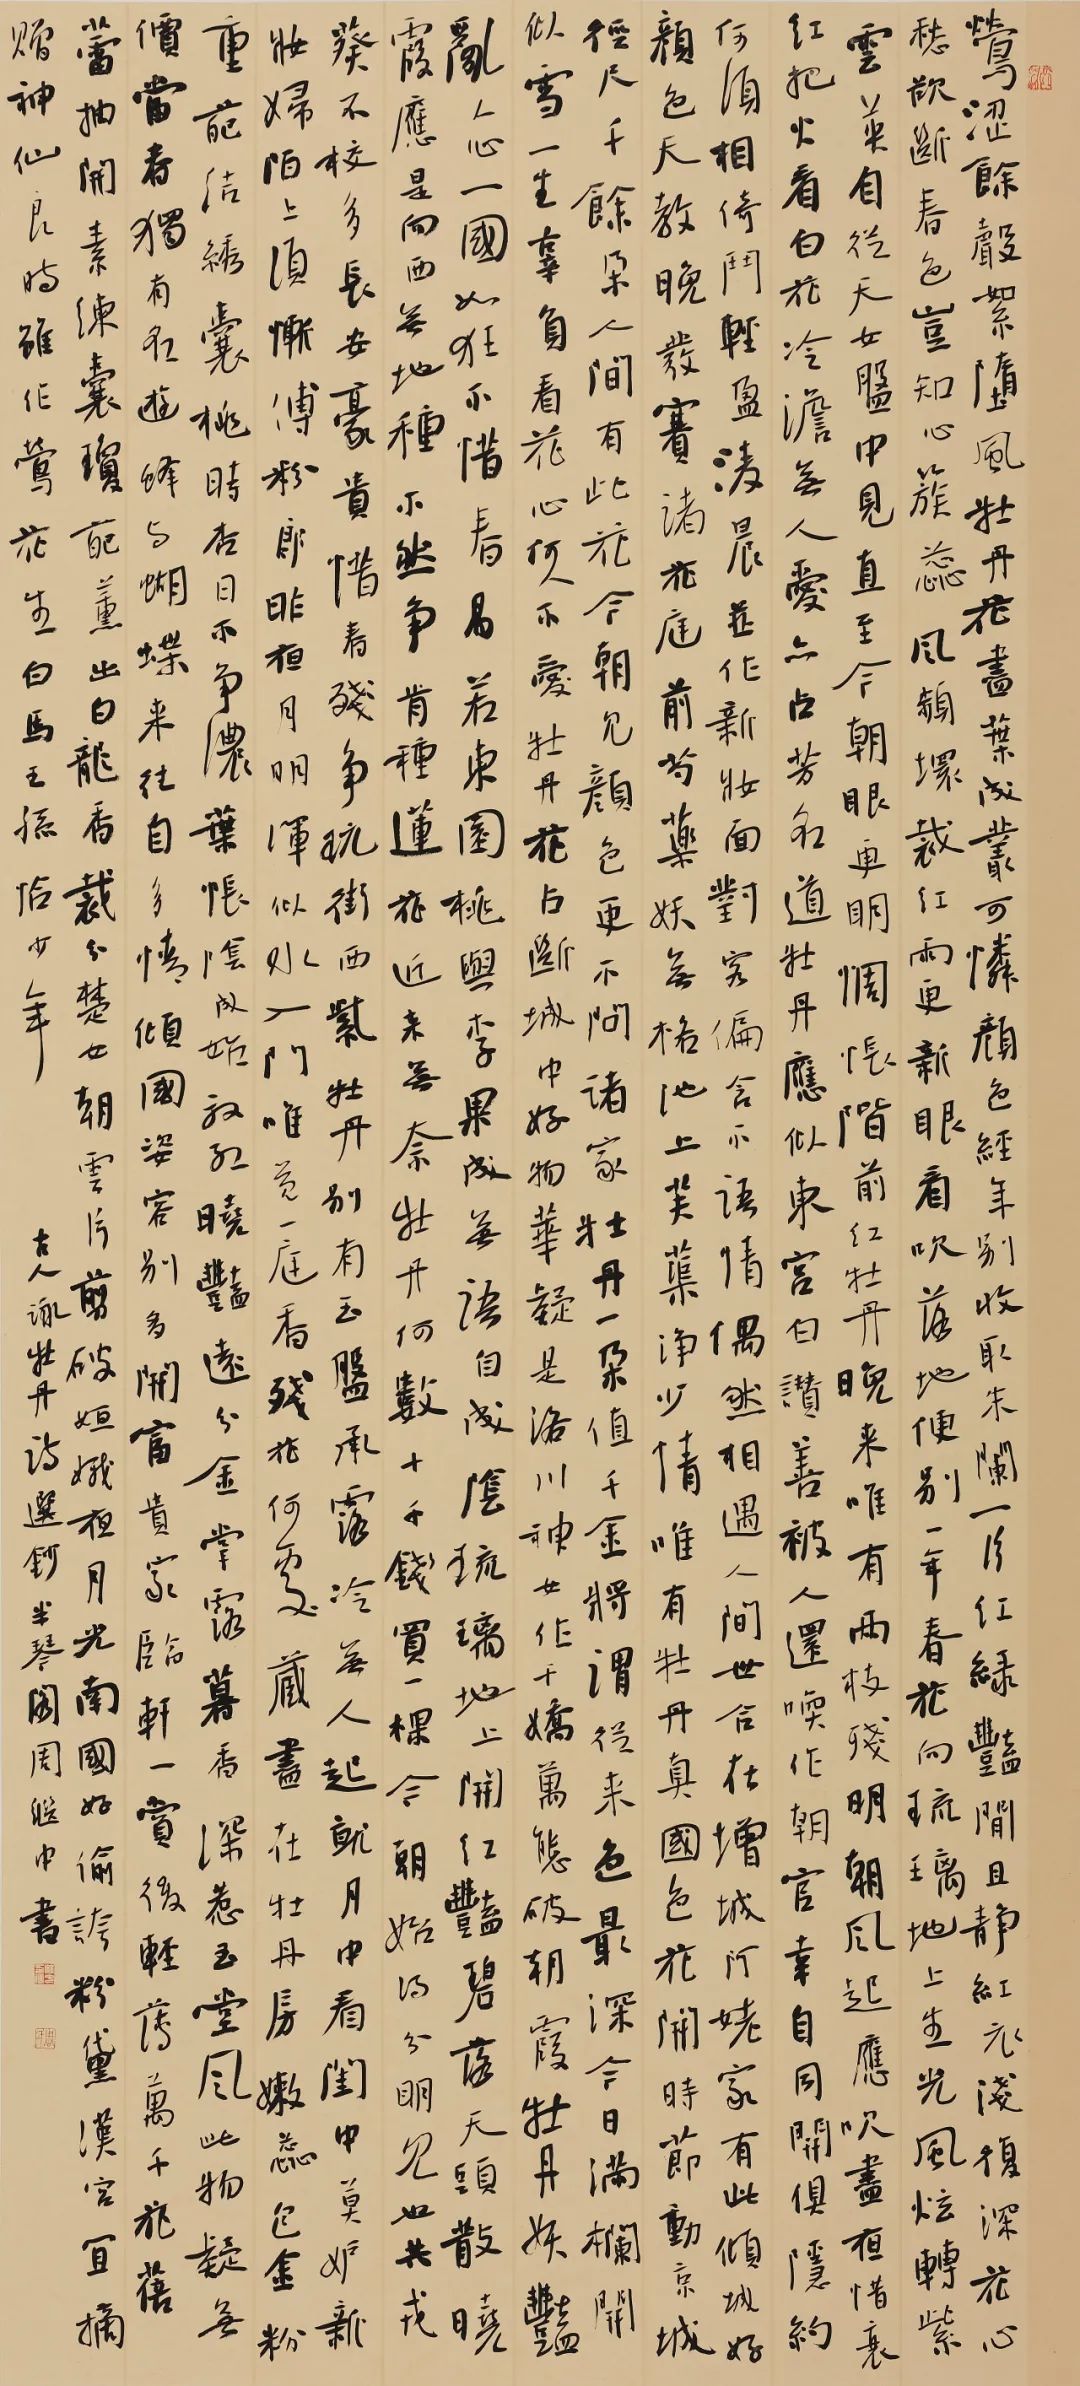 鶯澀餘聲絮墮風牡丹花盡葉成叢可憐顏色經年別收取朱闌一片紅綠豔閒且靜紅衣淺復深花心
愁欲斷春色豈知心簇蕊風頻壞裁紅雨更新眼看吹落地便別一年春花向琉璃地上生光風炫轉紫
雲英自從天女盤中見直至今朝眼更明惆悵階前紅牡丹晚來唯有兩枝殘明朝風起應吹盡夜惜衰
紅把火看白花冷澹無人愛亦占芳名道牡丹應似東宮白讚善被人還喚作朝官幸自同開俱隱約
何須相倚鬥輕盈凌晨並作新妝面對客偏含不語情偶然相遇人間世合在增城阿姥家有此傾城好
顏色天教晚發賽諸花庭前芍藥妖無格池上芙蕖淨少情唯有牡丹真國色花開時節動京城
徑尺千餘朵人間有此花今朝見顏色更不問諸家牡丹一朵值千金將謂從來色最深今日滿欄開
似雪一生辜負看花心何人不愛牡丹花占斷城中好物華疑是洛川神女作千嬌萬態破朝霞牡丹妖豔
亂人心一國如狂不惜春曷若東園桃與李果成無語自成陰琉璃地上開紅豔碧落天頭散曉
霞應是向西無地種不然爭肯種蓮花近來無奈牡丹何數十千錢買一棵今朝始得分明見也共戎
葵不校多長安豪貴惜春殘爭玩街西紫牡丹別有玉盤承露冷無人起就月中看閨中莫妒新
妝婦陌上須慚傅粉郎昨夜月明渾似水入門唯覺一庭香殘花何處藏盡在牡丹房嫩蕊包金粉
重葩結繡囊桃時杏日不爭濃葉帳陰成始放紅曉豔遠分金掌露暮香深惹玉堂風此物疑無
價當春獨有名遊蜂與蝴蝶來往自多情傾國姿容別多開富貴家臨軒一賞後輕薄萬千花舊
蕾抽開素練囊瓊葩薰出白龍香裁分楚女朝雲片剪破姮娥夜月光南國好偷誇粉黛漢宮宜摘
贈神仙良時雖作鶯花主白馬王孫恰少年
古人詠牡丹詩選鈔半琴閣周繼中書